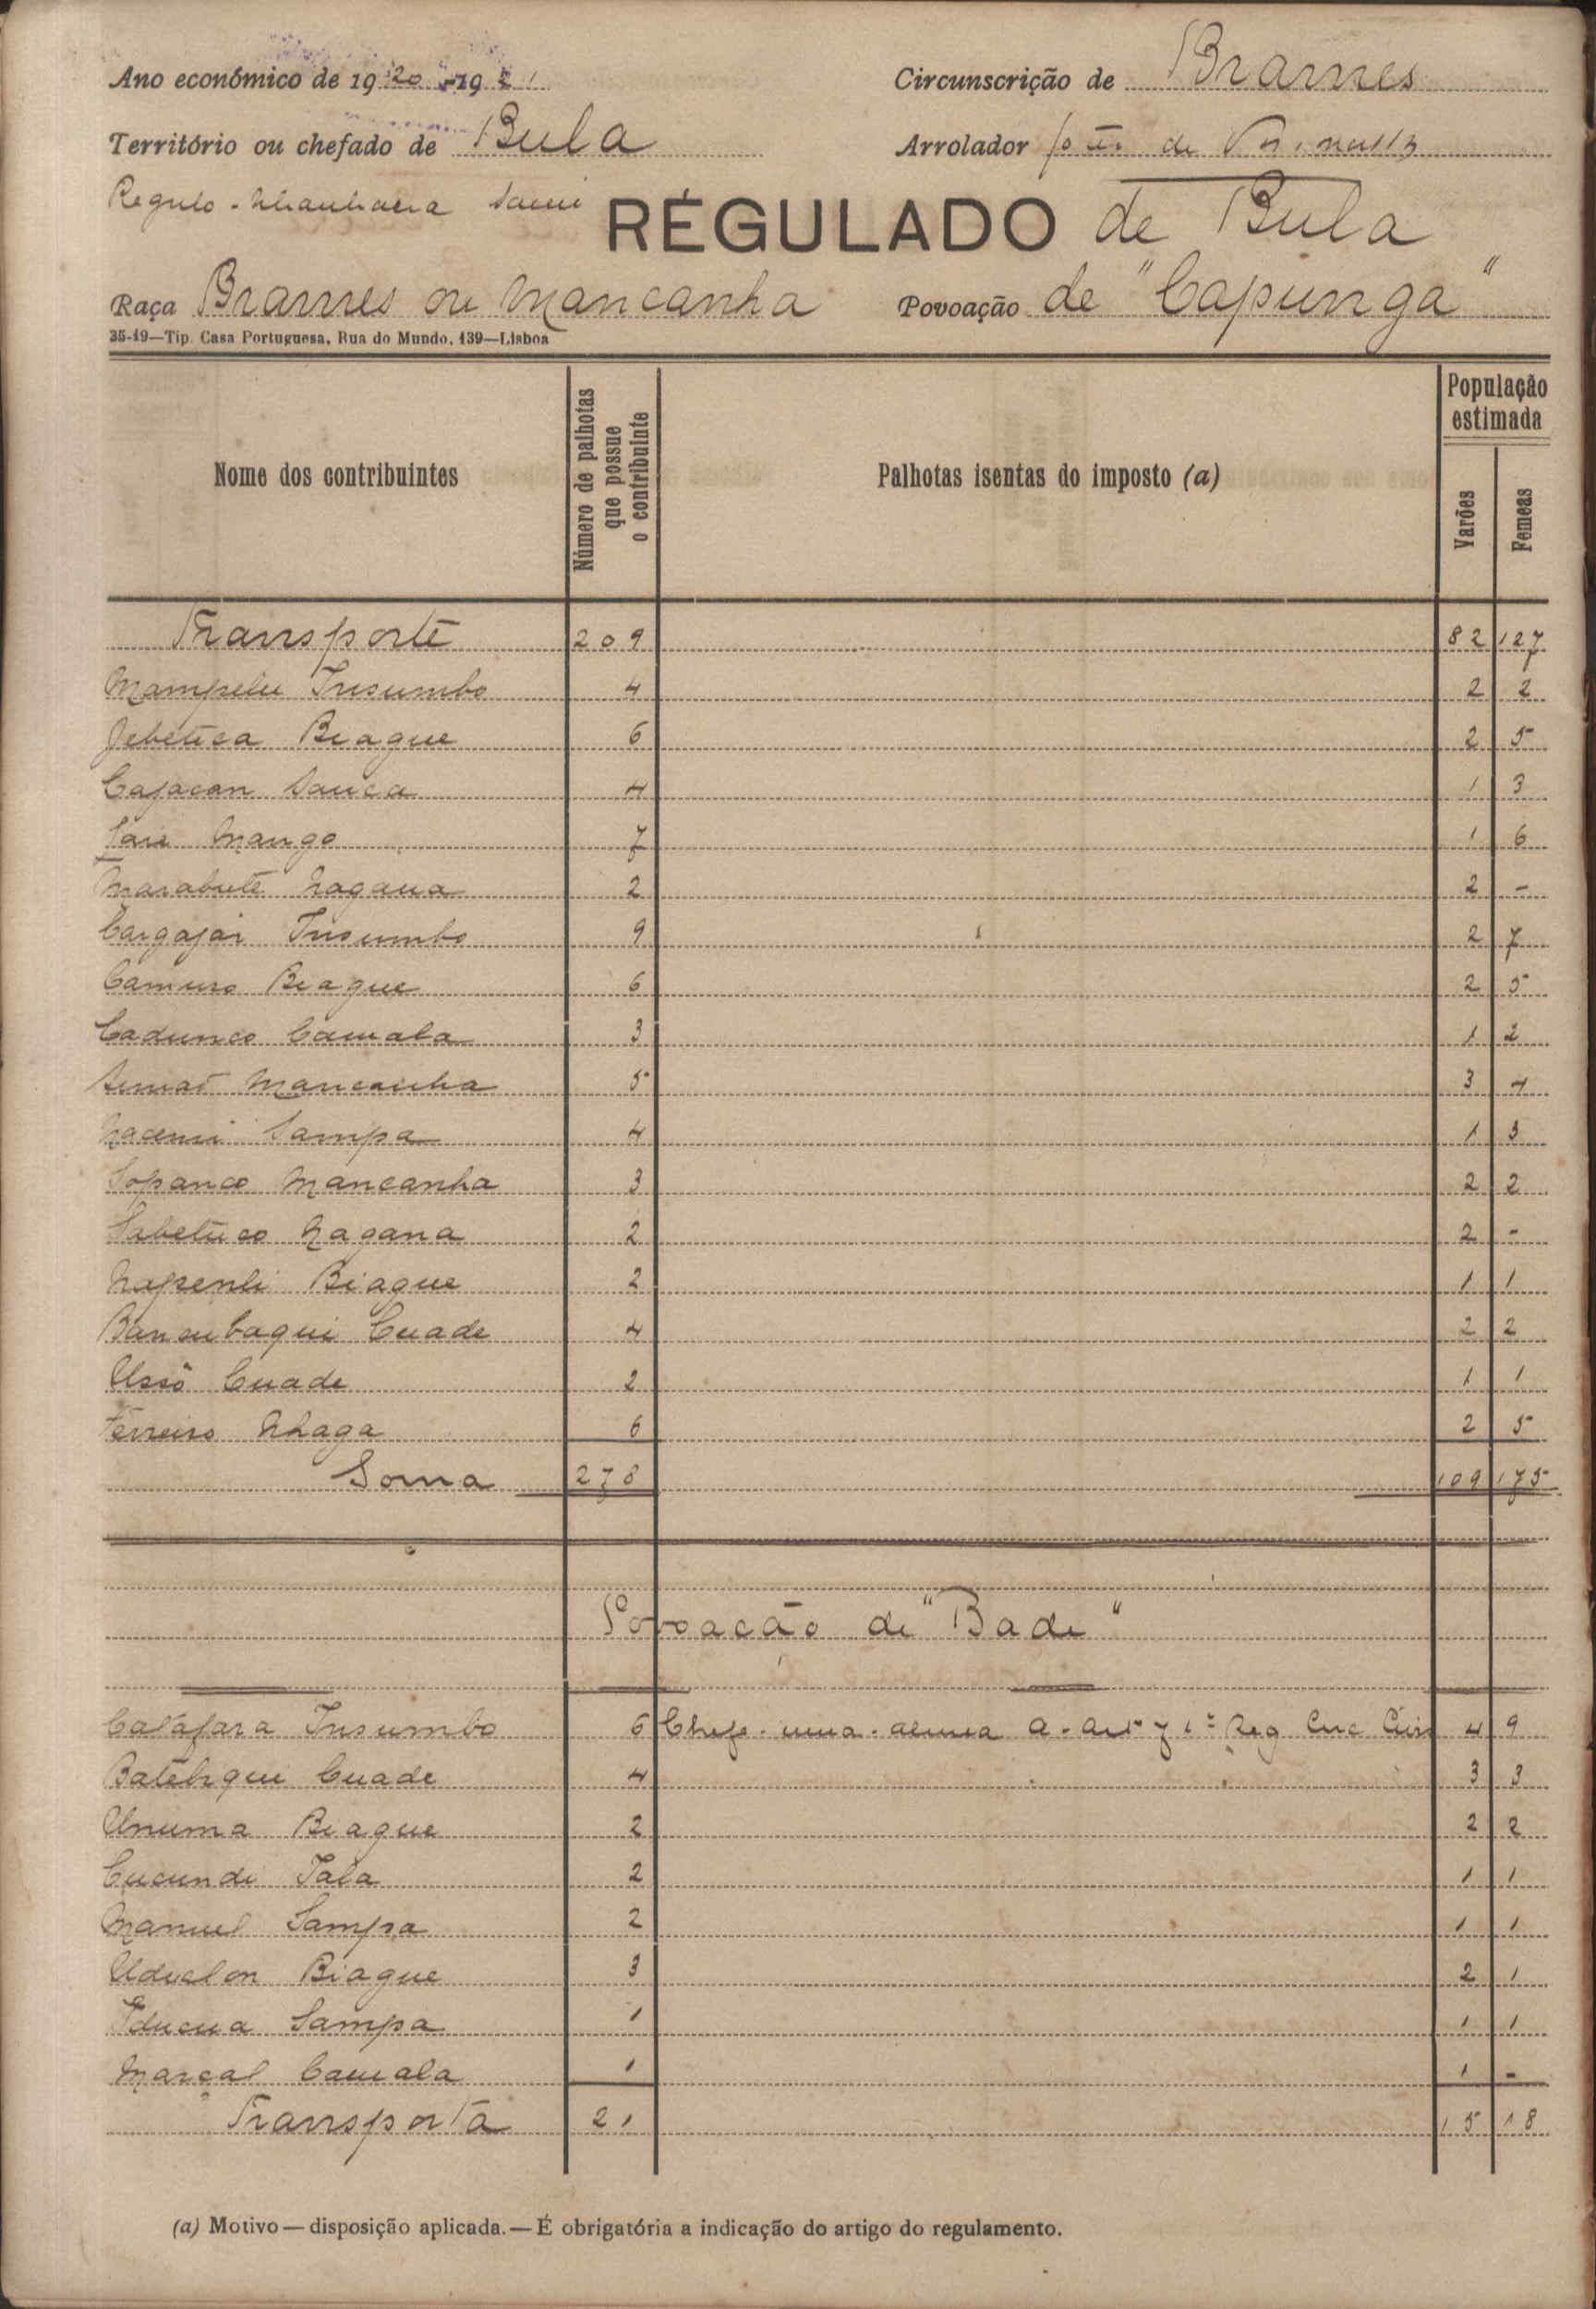 Ano económico de 1920-1921
Circunscrição de Brames
Território ou chefado de Bula
Arrolador de
Regulo -
RÉGULADO de Bula
Raça Brames ou Mancanha
Povoação de "Capunga"
35-19—Tip. Casa Portuguesa, Rua do Mundo, 139—Lisboa
Nome dos contribuintes
Número de palhotas que possue o contribuinte
Palhotas isentas do imposto (a)
População estimada
Varões
Femeas
Transporte 209 82 127
Mampelu Insumbo 4 2 2
Jebetica Biague 6 2 5
Cajacan Sanca 4 1 3
Mango 7 1 6
Marabute Nagana 2 2 -
Cargajar Insumbo 9 2 7
Camuso Biague 6 2 5
Cadunco Camala 3 1 2
Mancanha 5 3 4
Sampa 4 1 3
Sopanco Mancanha 3 2 2
Nagana 2 2 -
Napenli Biague 2 1 1
Cuade 4 2 2
Ussô Cuade 2 1 1
Ferreiro Nhaga 6 2 5
Soma 278 109 175
Povoação de "Bade"
Catafara Insumbo 6 Chefe - uma - alinea a - 4 9
Cuade 4 3 3
Unuma Biague 2 2 2
Cucundi Tala 2 1 1
Manuel Sampa 2 1 1
Uduclon Biague 3 2 1
Sampa 1 1 1
Marçal Camala 1 1 -
Transporta 21 15 18
(a) Motivo — disposição aplicada. — É obrigatória a indicação do artigo do regulamento.